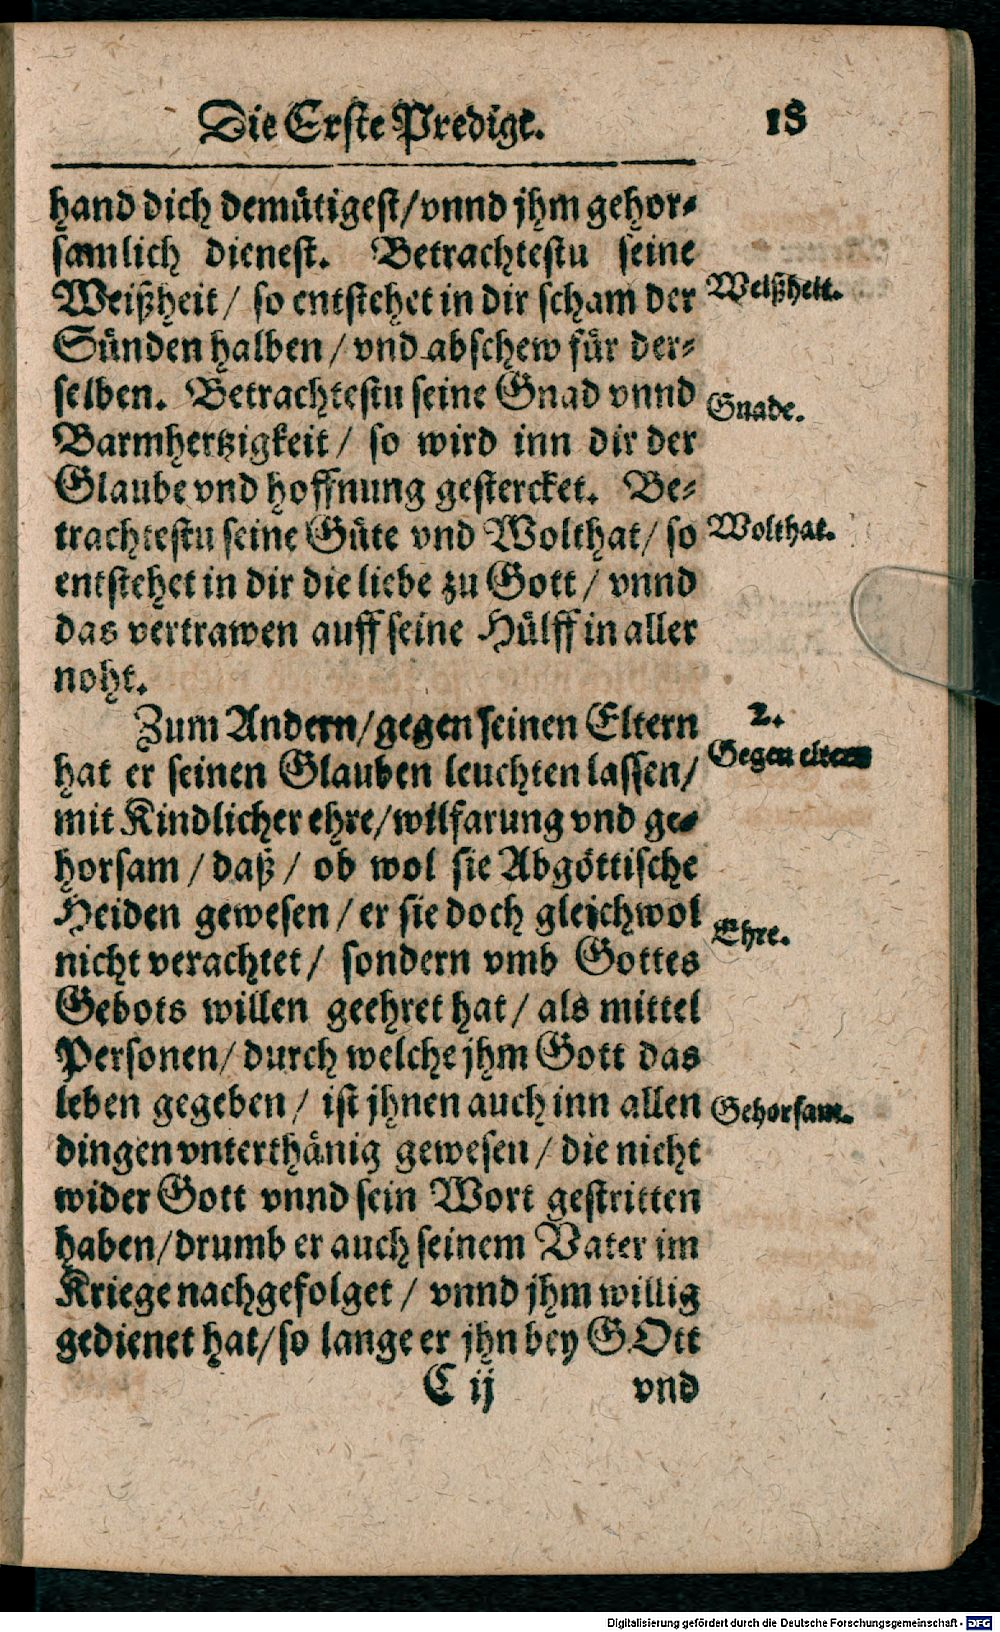 Die Erste Predigt.
18
hand dich demütigest/vnnd jhm gehor-
samlich dienest. Betrachtestu seine
Weißheit/ so entstehet in dir scham der
Weißheit.
Sünden halben/ vnd abschew für der-
selben. Betrachtestu seine Gnad vnnd
Gnade.
Barmhertzigkeit/ so wird inn dir der
Glaube vnd hoffnung gestercket. Be-
trachtestu seine Güte vnd Wolthat/ so
Wolthat.
entstehet in dir die liebe zu Gott/ vnnd
das vertrawen auff seine Hülff in aller
noht.
Zum Andern/gegen seinen Eltern
2.
Gegen eltern
hat er seinen Glauben leuchten lassen/
mit Kindlicher ehre/wilfarung vnd ge-
horsam/ daß/ ob wol sie Abgöttische
Heiden gewesen/ er sie doch gleichwol
Ehre.
nicht verachtet/ sondern vmb Gottes
Gebots willen geehret hat/ als mittel
Personen/ durch welche jhm Gott das
leben gegeben/ ist jhnen auch inn allen
Gehorsam.
dingen vnterthänig gewesen/ die nicht
wider Gott vnnd sein Wort gestritten
haben/drumb er auch seinem Vater im
Kriege nachgefolget/ vnnd jhm willig
gedienet hat/so lange er jhn bey GOtt
C ij
vnd
Digitalisierung gefördert durch die Deutsche Forschungsgemeinschaft - DFG